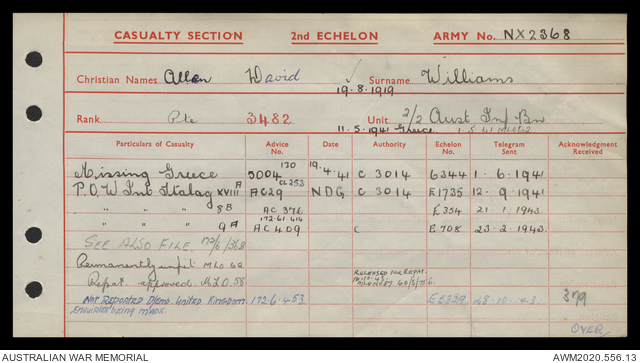 CASUALTY SECTION 2nd ECHELON ARMY No. NX2368
Christian Names Allen David Surname Williams
19.8.1919
Rank Pte 3482 Unit 2/2 Aust Inf Bn
11.5.1941 Greece 1.5.41
Particulars of Casualty Advice No. Date Authority Echelon No. Telegram Sent Acknowledgment Received
130
Missing Greece 5004 19.4.41 C 3014 6344 1.6.1941
CL253
P.O.W Int Stalag XVIII A AC29 NDG C 3014 E1735 12.9.1941
" " " 8B AC 376 E354 21.1.1943
172.61.414
" " " 9A AC409 C E708 23.2.1943
SEE ALSO FILE. 172/6/368
Permanently unfit MLO 62
Repat. approved. MLO.58
RELEASED FOR REPAT.
NOT REPORTED D/EMB. UNITED KINGDOM 172.6.453 E5329 28.10.43 379
ENQUIRIES BEING MADE.
OVER
AUSTRALIAN WAR MEMORIAL AWM2020.556.13